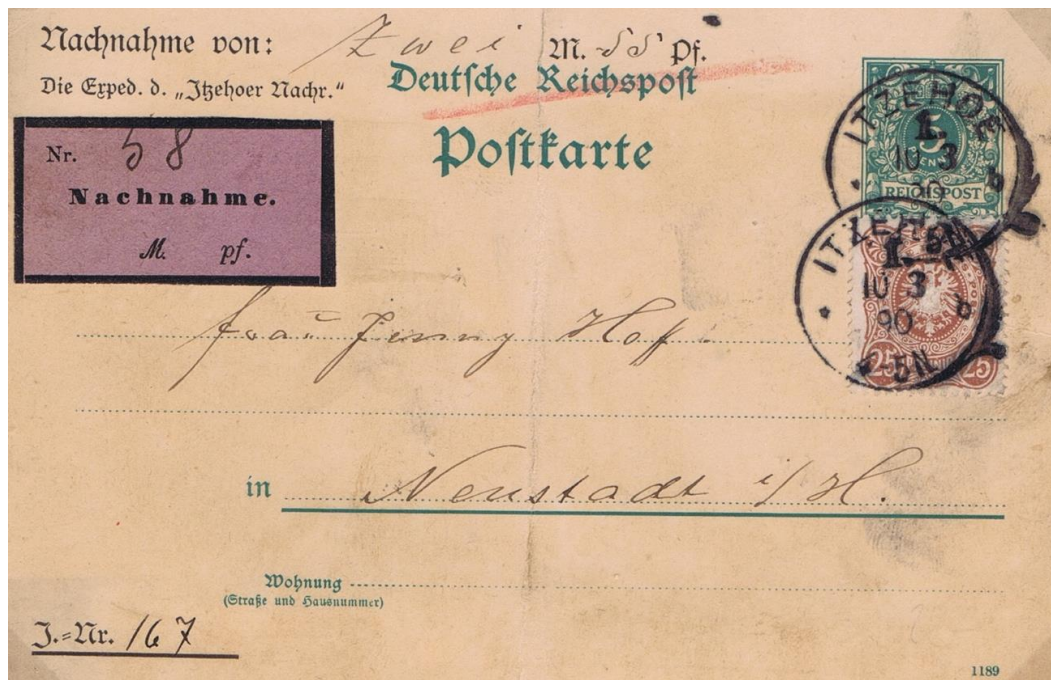 Nachnahme von: Zwei M. 55 Pf.
Die Exped. d. „Itzehoer Nachr.“
Deutsche Reichspost
Postkarte
Nr. 58
Nachnahme.
M. pf.
5
PFENNIG
REICHSPOST
ITZEHOE
1.
10 3
90
b
ITZEHOE
1.
10 3
90
b
5-6N
25 25
Frau Jenny Hoff.
in Neustadt i/H.
Wohnung
(Straße und Hausnummer)
J.=Nr. 167
1189